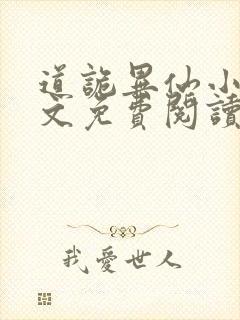 道詭異仙小
文免費閱讀
我愛世人